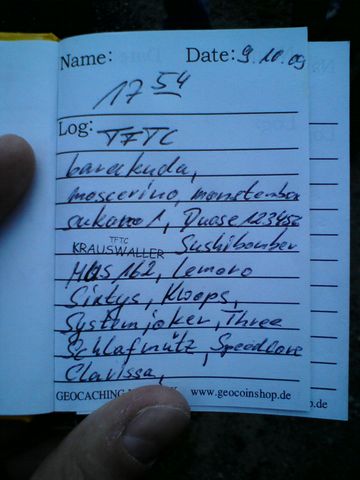 Name: Date: 9.10.09
17 54
Log: TFTC
barakuda,
moscerino, monsterbox
sukano 1, Duose 123456
TFTC
KRAUSWALLER Sushibomber
162, Lemoro
Sixtys, Kloops,
Systemjoker, Three
Schlafmütz, Speedcore
Clarissa,
GEOCACHING www.geocoinshop.de
p.de